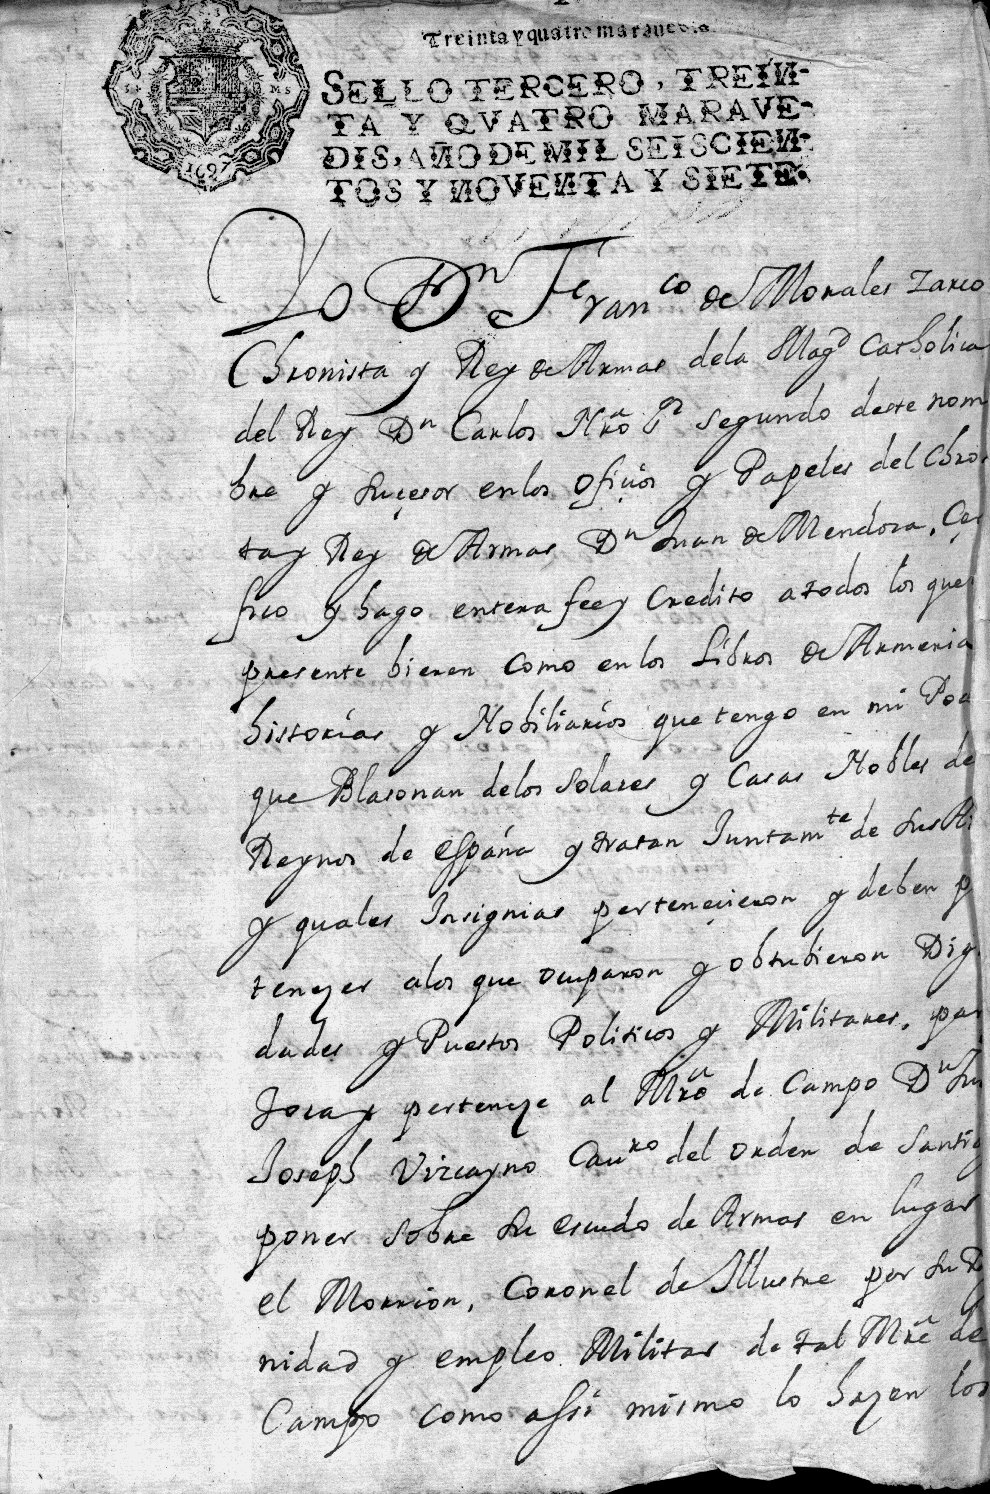 Treinta y quatro maravedis.
SELLO TERCERO, TREIN-
TA Y QVATRO MARAVE-
DIS, AÑO DE MIL SEISCIEN-
TOS Y NOVENTA Y SIETE.
1697
Yo Dn Franco de Morales Zarco
Chronista y Rey de Armas dela Magd Catholica
del Rey Dn Carlos Nro Sr segundo deste nom
bre y suçesor enlos ofiçios y Papeles del Chro
ta y Rey de Armas Dn Juan de Mendoza, Çer
fico y hago entera fee y Credito a todos los que
presente bieren como en los Libros de Armeria
historias y Nobiliarios que tengo en mi Pod
que Blasonan delos Solares y Casas Nobles de
Reynos de España y tratan Juntamte de sus
y quales Insignias perteneçieron y deben p
tenezer alos que ocuparon y obtubieron Dig
dades y Puestos Politicos y Militares, par
Toca y perteneze al Mro de Campo Dn Ju
Joseph Vizcayno Cauro del orden de Santia
poner sobre su escudo de Armas en lugar
el Morrion, Coronel de Illustre por su D
nidad y empleo Militar de tal Mre de
Campo como assi mismo lo hazen los